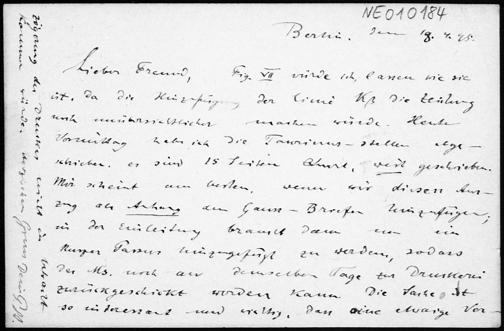 NE010184
Berlin. den 18. 4. 95.
Lieber Freund, Fig. VII würde ich lassen wie sie
ist, da die Hinzufügung der Linie die Zeichnung
noch unübersichtlicher machen würde. Heute
Vormittag habe ich die Taurinus-stellen abge-
schrieben. es sind 15 Seiten Quart, weit geschrieben.
Mir scheint am besten, wenn wir diesen Aus-
zug als Anhang den Gauss-Briefen hinzufügen;
in der Einleitung braucht dann nur ein
kurzer Passus hinzugefügt zu werden, sodass
das Ms. noch an demselben Tage zur Druckerei
zurückgeschickt werden kann. Die Sache ist
so interessant und wichtig, dass eine etwaige Ver-
zögerung des Druckes nicht in Betracht
kommen würde. Herzlichen Gruss Dein